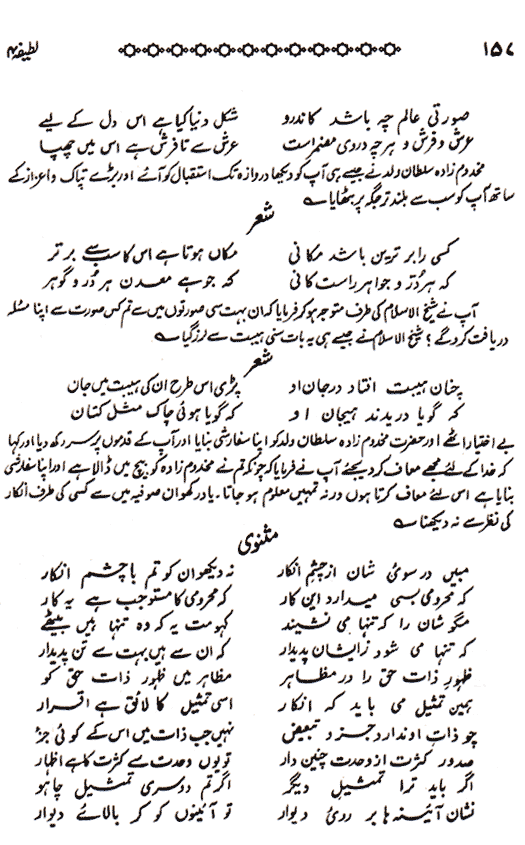 ۱۵۷ لطیفہ ۴
صورتی عالم چہ باشد کاندرو شکل دنیا کیا ہے اس دل کے لیے
عرش و فرش و ہرچہ دروی مضمراست عرش سے تا فرش ہے اس میں چھپا
مخدوم زادہ سلطان ولد نے جیسے ہی آپ کو دیکھا دروازہ تک استقبال کو آئے اور بڑے تپاک و اعزاز کے
ساتھ آپ کو سب سے بلند تر جگہ پر بٹھایا
شعر
کسی را برترین باشد مکانی مکاں ہوتا ہے اس کا سب سے برتر
کہ ہر دُرّ و جواہر راست کانی کہ جو ہے معدن ہر دُر و گوہر
آپ نے شیخ الاسلام کی طرف متوجہ ہو کر فرمایا کہ ان بہت سی صورتوں میں سے تم کس صورت سے اپنا مسئلہ
دریافت کرو گے؟ شیخ الاسلام نے جیسے ہی یہ بات سنی ہیبت سے لرز گیا
شعر
چناں ہیبت افتاد درجان او پڑی اس طرح ان کی ہیبت میں جان
کہ گویا دریدند ہیجان او کہ گویا ہوئی چاک مثل کتان
بے اختیار اٹھے اور حضرت مخدوم زادہ سلطان ولد کو اپنا سفارشی بنایا اور آپ کے قدموں پر سر رکھ دیا اور کہا
کہ خدا کے لئے مجھے معاف کر دیجئے آپ نے فرمایا کہ چونکہ تم نے مخدوم زادہ کو بیچ میں ڈالا ہے اور اپنا سفارشی
بنایا ہے اس لئے معاف کرتا ہوں ورنہ تمہیں معلوم ہو جاتا۔ یاد رکھو ان صوفیہ میں سے کسی کی طرف انکار
کی نظر سے نہ دیکھنا
مثنوی
مبیں در سوئ شان از چشم انکار نہ دیکھو ان کو تم با چشم انکار
کہ محرومی بسی میدارد این کار کہ محرومی کا مستوجب ہے یہ کار
مگو شان را کہ تنہا می نشیند کہو مت یہ کہ وہ تنہا ہیں بیٹھے
کہ تنہا می شود زایشان پدیدار کہ ان سے ہیں بہت سے تن پدیدار
ظہور ذات حق را در مظاہر مظاہر میں ظہور ذات حق کو
ہمین تمثیل می باید کہ انکار اسی تمثیل کا لائق ہے اقرار
چو ذات او ندارد جزو تبعیض نہیں جب ذات میں اس کے کوئی جز
صدور کثرت از وحدت چنین دار تو یوں وحدت سے کثرت کا ہے اظہار
اگر باید ترا تمثیل دیگر اگر تم دوسری تمثیل چاہو
نشان آئینہ ہا بر روئ دیوار تو آئینوں کو کر بالائے دیوار